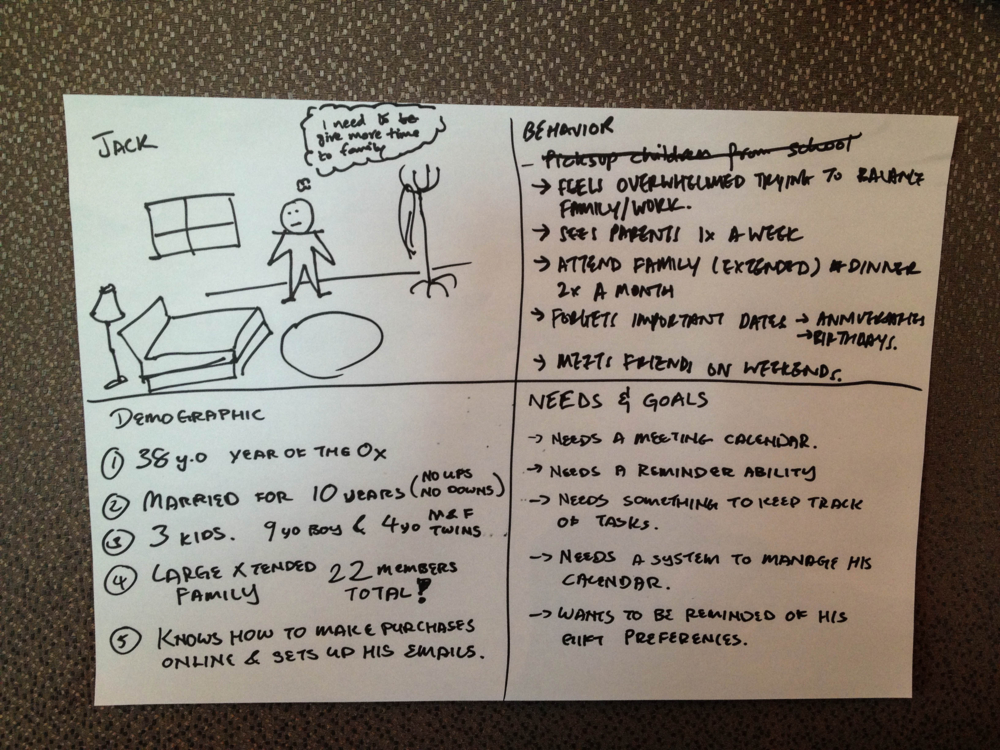 JACK
I need to be
give more time
to family
BEHAVIOR
- Picksup children from school
→ FEELS OVERWHELMED TRYING TO BALANCE
FAMILY/WORK.
→ SEES PARENTS 1x A WEEK
→ ATTEND FAMILY (EXTENDED) DINNER
2x A MONTH
→ FORGETS IMPORTANT DATES → ANNIVERSARIES
→ BIRTHDAYS.
→ MEETS FRIENDS ON WEEKENDS.
DEMOGRAPHIC
1 38 y.o YEAR OF THE OX
2 MARRIED FOR 10 YEARS (NO UPS
NO DOWNS)
3 3 KIDS. 9 yo BOY & 4 yo M&F
TWINS
4 LARGE XTENDED 22 MEMBERS
FAMILY TOTAL!
5 KNOWS HOW TO MAKE PURCHASES
ONLINE & SETS UP HIS EMAILS.
NEEDS & GOALS
→ NEEDS A MEETING CALENDAR.
→ NEEDS A REMINDER ABILITY
→ NEEDS SOMETHING TO KEEP TRACK
OF TASKS.
→ NEEDS A SYSTEM TO MANAGE HIS
CALENDAR.
→ WANTS TO BE REMINDED OF HIS
GIFT PREFERENCES.